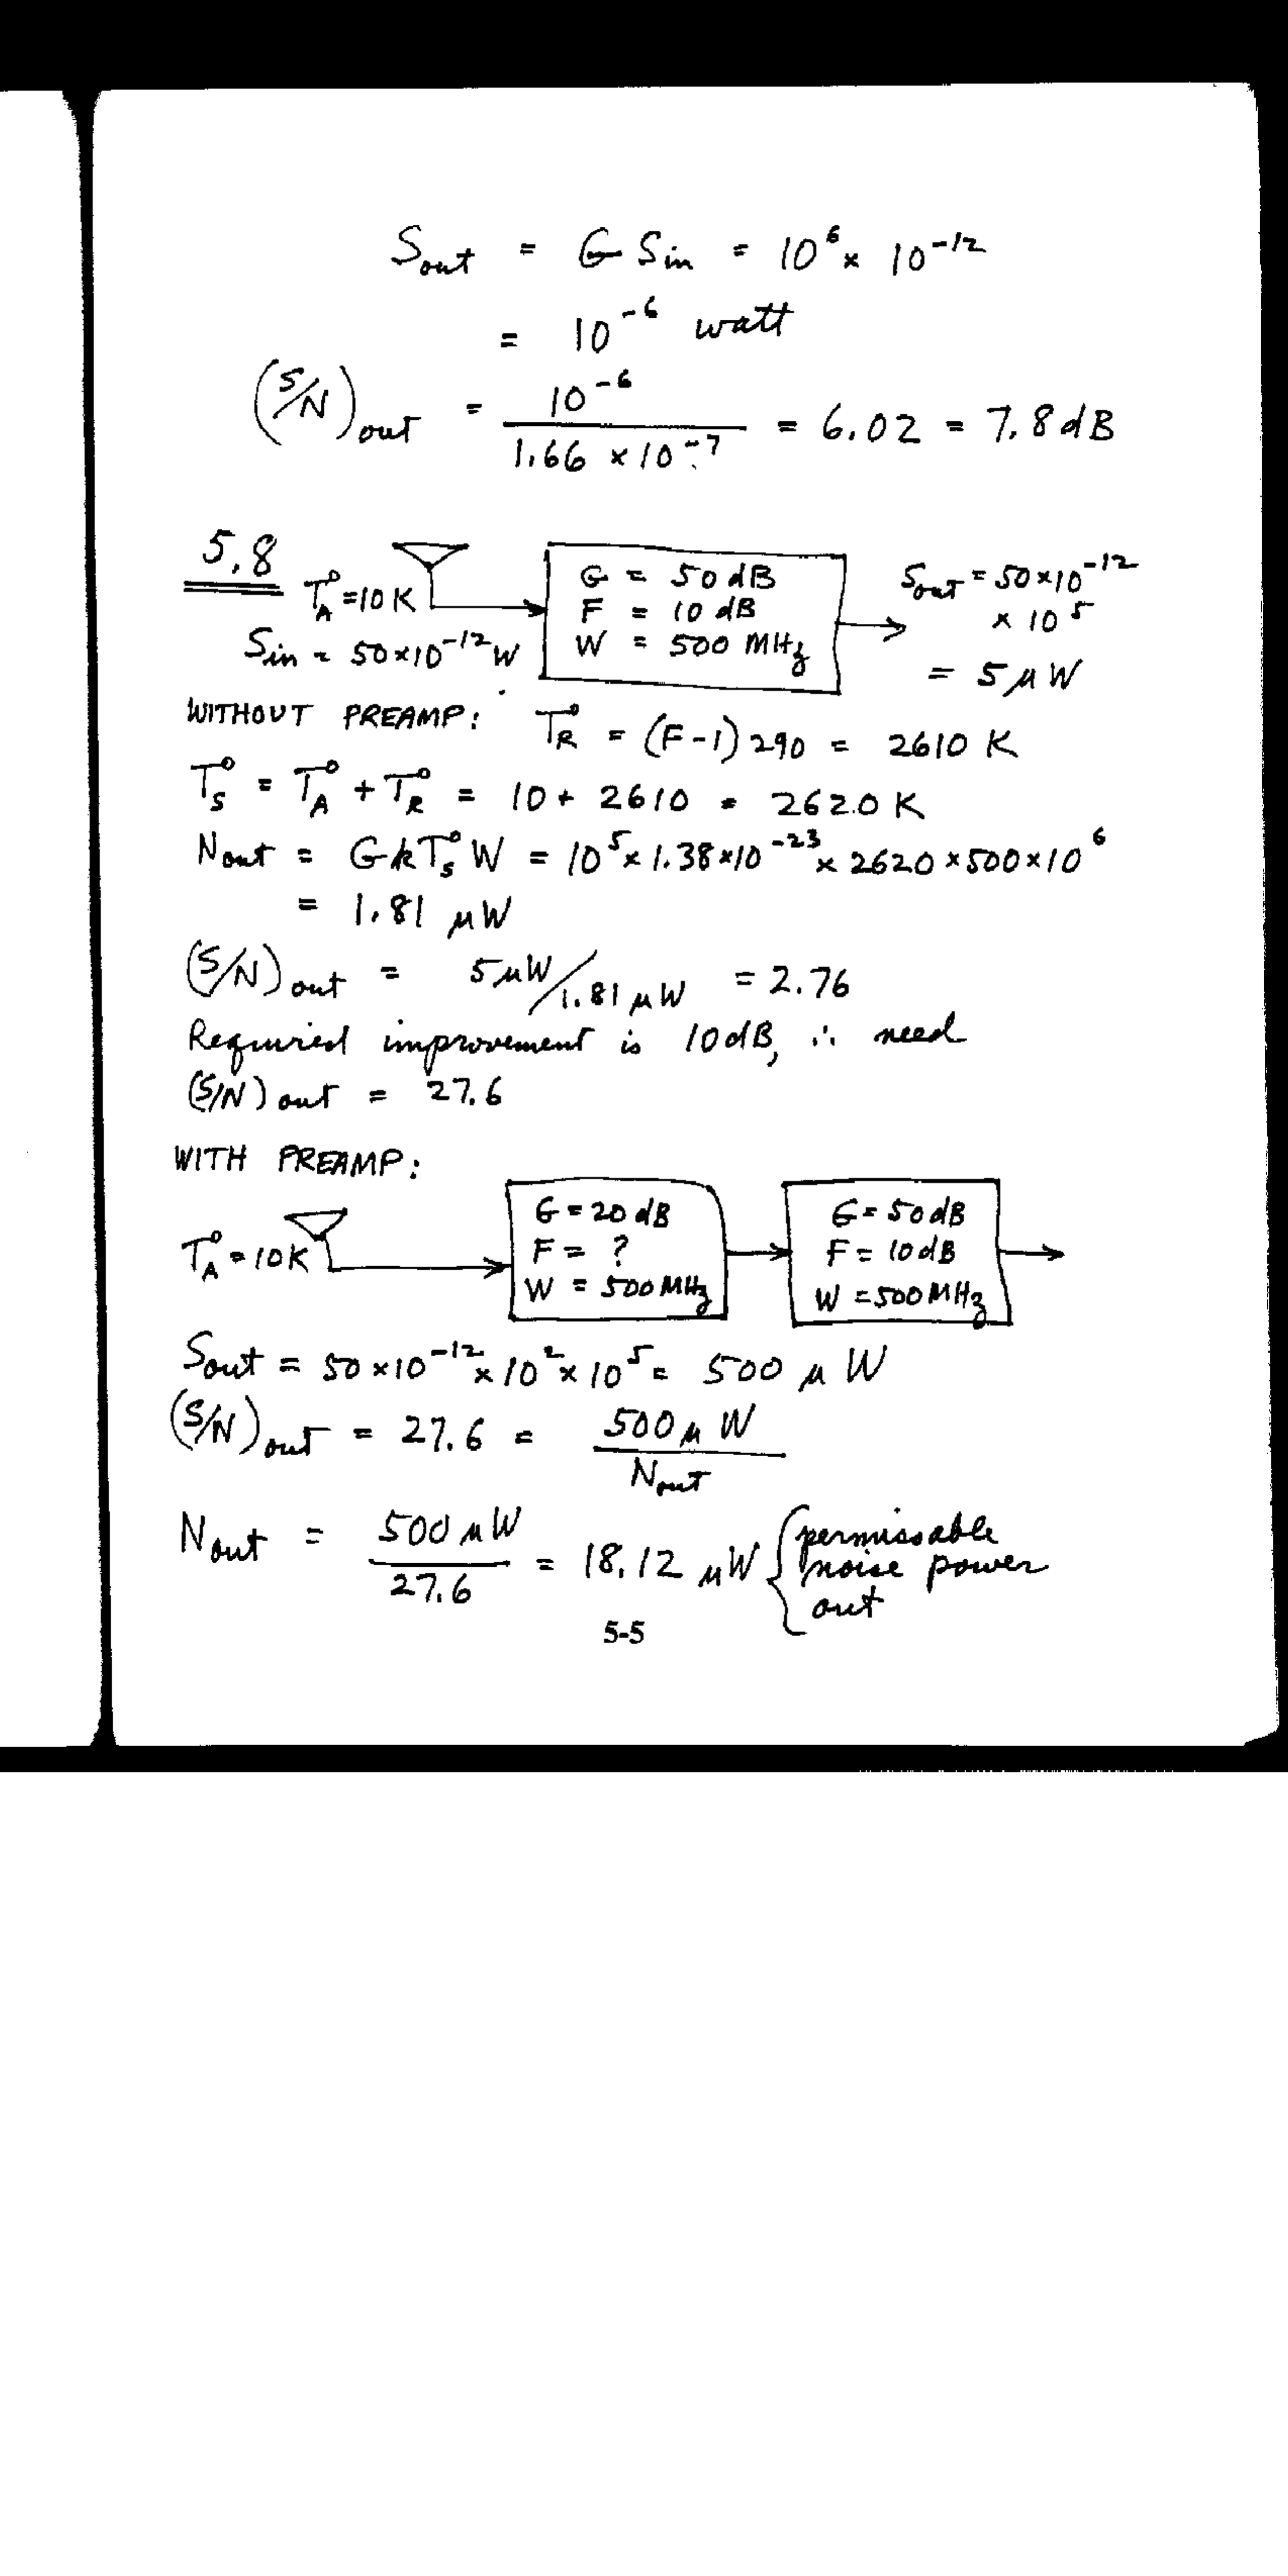 S_out = G S_in = 10^6 × 10^-12
= 10^-6 watt
(S/N)_out = 10^-6 / 1.66 × 10^-7 = 6.02 = 7.8 dB
5.8
T°_A = 10 K
S_in = 50×10^-12 W
G = 50 dB
F = 10 dB
W = 500 MHz
S_out = 50×10^-12
× 10^5
= 5 μW
WITHOUT PREAMP: T°_R = (F-1) 290 = 2610 K
T°_S = T°_A + T°_R = 10 + 2610 = 2620 K
N_out = GkT°_S W = 10^5 × 1.38×10^-23 × 2620 × 500 × 10^6
= 1.81 μW
(S/N)_out = 5 μW / 1.81 μW = 2.76
Required improvement is 10 dB, ∴ need
(S/N)_out = 27.6
WITH PREAMP:
T°_A = 10 K
G = 20 dB
F = ?
W = 500 MHz
G = 50 dB
F = 10 dB
W = 500 MHz
S_out = 50×10^-12 × 10^2 × 10^5 = 500 μW
(S/N)_out = 27.6 = 500 μW / N_out
N_out = 500 μW / 27.6 = 18.12 μW { permissable
noise power
out
5-5